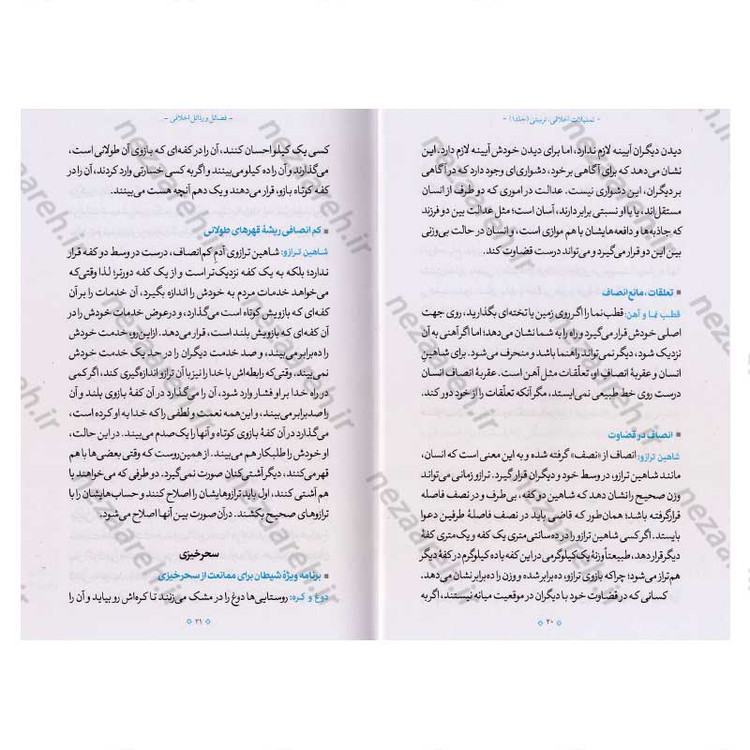 - تمثیلات اخلاقی، تربیتی (جلد۱) -
دیدن دیگران آیینه لازم ندارد، اما برای دیدن خودش آیینه لازم دارد، این
نشان می‌دهد که برای آگاهی بر خود، دشواری‌ای وجود دارد که در آگاهی
بر دیگران، این دشواری نیست. عدالت در اموری که دو طرف از انسان
مستقل‌اند، یا با او نسبتی برابر دارند، آسان است؛ مثل عدالت بین دو فرزند
که جاذبه‌ها و دافعه‌هایشان با هم موازی است، و انسان در حالت بی‌وزنی
این دو قرار می‌گیرد و می‌تواند درست قضاوت کند.
تعلقات، مانع انصاف
قطب نما و آهن: قطب‌نما را اگر روی زمین یا تخته‌ای بگذارید، روی جهت
اصلی خودش قرار می‌گیرد و راه را به شما نشان می‌دهد؛ اما اگر آهنی به آن
نزدیک شود، دیگر نمی‌تواند راهنما باشد و منحرف می‌شود. برای شاهینِ
انسان و عقربهٔ انصافِ او، تعلّقات مثل آهن است. عقربهٔ انصاف انسان
درست روی خط طبیعی نمی‌ایستد، مگر آنکه تعلّقات را از خود دور کند.
انصاف در قضاوت
شاهین ترازو: انصاف از «نصف» گرفته شده و به این معنی است که انسان،
مانند شاهین ترازو، در وسط خود و دیگران قرار گیرد. ترازو زمانی می‌تواند
وزن صحیح را نشان دهد که شاهین دو کفه، بی‌طرف و در نصف فاصله
قرار گرفته باشد؛ همان‌طور که قاضی باید در نصف فاصلهٔ طرفین دعوا
بایستد. اگر کسی شاهین ترازو را در ده‌سانتی متری یک کفه و یک‌متری کفهٔ
دیگر قرار دهد، طبیعتاً وزنهٔ یک کیلوگرمی در این کفه با ده کیلوگرم در کفهٔ دیگر
هم‌تراز می‌شود؛ چراکه بازوی ترازو، ده برابر شده و وزن را ده برابر نشان می‌دهد.
کسانی که در قضاوت خود با دیگران در موقعیت میانه نیستند، اگر به
۲۰
- فضائل و رذائل اخلاقی -
کسی یک کیلو احسان کنند، آن را در کفه‌ای که بازوی آن طولانی است،
می‌گذارند و آن را ده کیلو می‌بینند و اگر به کسی خسارتی وارد کردند، آن را
در کفه کوتاه بازو، قرار می‌دهند و یک دهم آنچه هست می‌بینند.
کم انصافی ریشهٔ قهرهای طولانی
شاهین ترازو: شاهین ترازوی آدمِ کم‌انصاف، درست در وسط دو کفه قرار
ندارد؛ بلکه به یک کفه نزدیک‌تر است و از یک کفه دورتر؛ لذا وقتی‌که
می‌خواهد خدمات مردم به خودش را اندازه بگیرد، آن خدمات را بر آن
کفه‌ای که بازویش کوتاه است می‌گذارد، و درعوض خدمات خودش را در
آن کفه‌ای که بازویش بلند است، قرار می‌دهد. ازاین‌رو، خدمت خودش
را ده‌برابر می‌بیند، و صد خدمت دیگران را در حد یک خدمت هم
نمی‌بیند. وقتی‌که رابطه‌اش با خدا را نیز با آن ترازو اندازه‌گیری کند، اگر کمی
در راه خدا بر او فشار وارد شود، آن را می‌گذارد در آن کفهٔ بازوی بلند و آن
را صدبرابر می‌بیند، و این‌همه نعمت و لطفی را که خدا به او کرده است،
می‌گذارد در آن کفهٔ بازوی کوتاه و آنها را یک‌صدم می‌بیند. در این حالت،
او خودش را طلبکار هم می‌بیند. از همین‌روست که وقتی بعضی‌ها با هم
قهر می‌کنند، دیگر آشتی‌کنان صورت نمی‌گیرد. دو طرفی که می‌خواهند با
هم آشتی کنند، اول باید ترازوهایشان را اصلاح کنند و حساب‌هایشان را با
ترازوهای صحیح بکشند. در آن صورت بین آنها اصلاح می‌شود.
سحرخیزی
برنامه ویژهٔ شیطان برای ممانعت از سحرخیزی
دوغ و کره: روستایی‌ها دوغ را در مشک می‌زنند تا کره‌اش رو بیاید و آن را
۲۱
nezaareh.ir